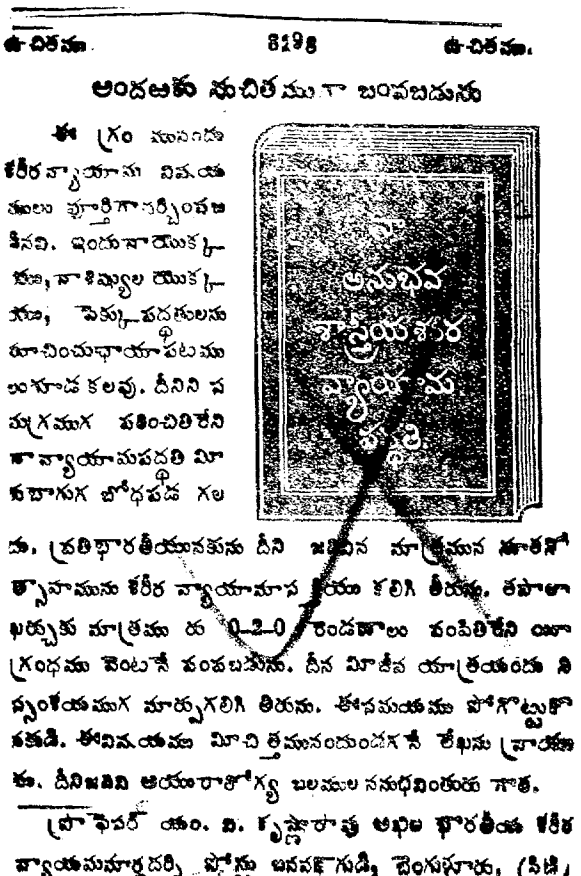 ఉచితము. 8198 ఉచితము.
అందఱకు నుచితముగా బంపబడును
ఈ గ్రంథమునందు
శరీరవ్యాయామ విషయ
ములు పూర్తిగా చర్చింపబ
డినవి. ఇందు నాయొక్క
యు, నా శిష్యుల యొక్క
యు, పెక్కు పద్ధతులను
సూచించుఛాయాపటము
లుకూడ కలవు. దీనిని స
మగ్రముగ పఠించితిరేని
నా వ్యాయామపద్ధతి మీ
కుబాగుగ బోధపడ గల
నా
అనుభవ
శాస్త్రీయశరీర
వ్యాయామ
పద్ధతి
దు. ప్రతిభారతీయునకును దీని జదివిన మాత్రమున నూతనో
త్సాహమును శరీర వ్యాయామాసక్తియు కలిగి తీరును. తపాలా
ఖర్చుకు మాత్రము రు 0-2-0 రెండణాలం పంపితిరేని యీ
గ్రంధము వెంటనే పంపబడును. దీన మీజీవ యాత్రయందు ని
స్సంశయముగ మార్పుగలిగి తీరును. ఈసమయము పోగొట్టుకొ
నకుడి. ఈవిషయము మీచిత్తమునందుండగనే లేఖను వ్రాయు
డు. దీనిజదివి ఆయురారోగ్య బలముల ననుభవింతురు గాత.
ప్రొఫెసర్ యం. వి. కృష్ణారావు అఖిల భారతీయ శరీర
వ్యాయమమార్గదర్శి పోస్టు బసవనగుడి, బెంగుళూరు, (సిటి)